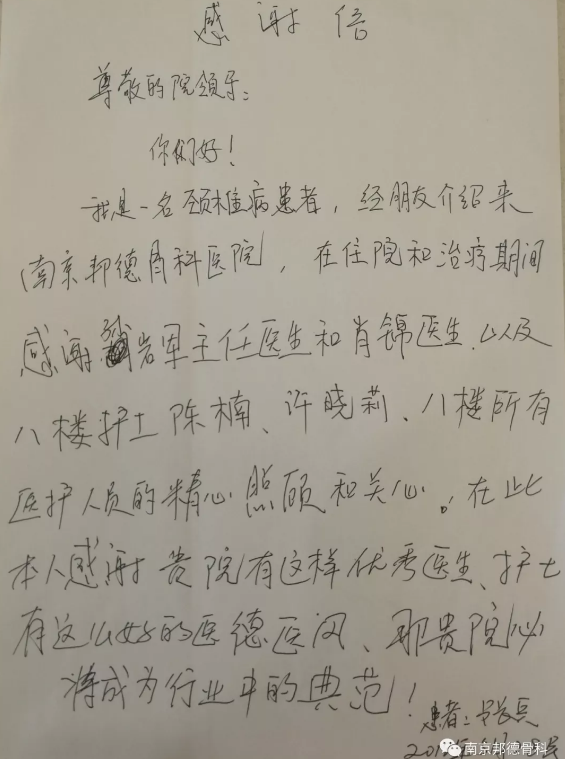 感谢信
尊敬的院领导:
你们好!
我是一名颈椎病患者,经朋友介绍来
南京邦德骨科医院,在住院和治疗期间
感谢 岩军主任医生和肖锦医生、以及
八楼护士陈楠、许晓莉、八楼所有
医护人员的精心照顾和关心。在此
本人感谢贵院有这样优秀医生、护士
有这么好的医德医风、那贵院必
将成为行业中的典范!
患者:
南京邦德骨科